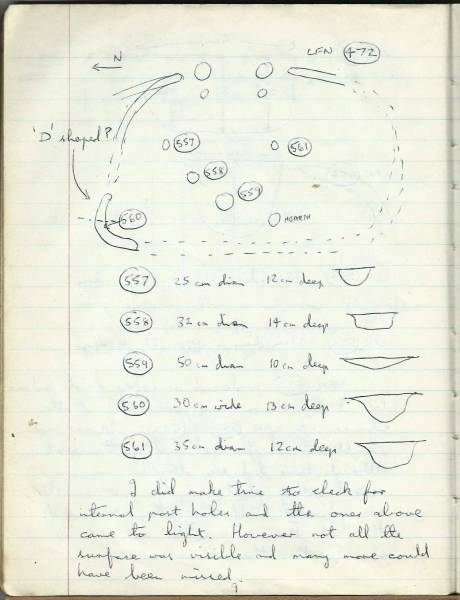 N
LFN 472
'D' shaped?
557
561
558
559
560
HEARTH
557 25 cm diam 12 cm deep
558 32 cm diam 14 cm deep
559 50 cm diam 10 cm deep
560 30 cm wide 13 cm deep
561 35 cm diam 12 cm deep
I did make time to check for
internal post holes and the ones above
came to light. However not all the
surface was visible and many more could
have been missed.
9